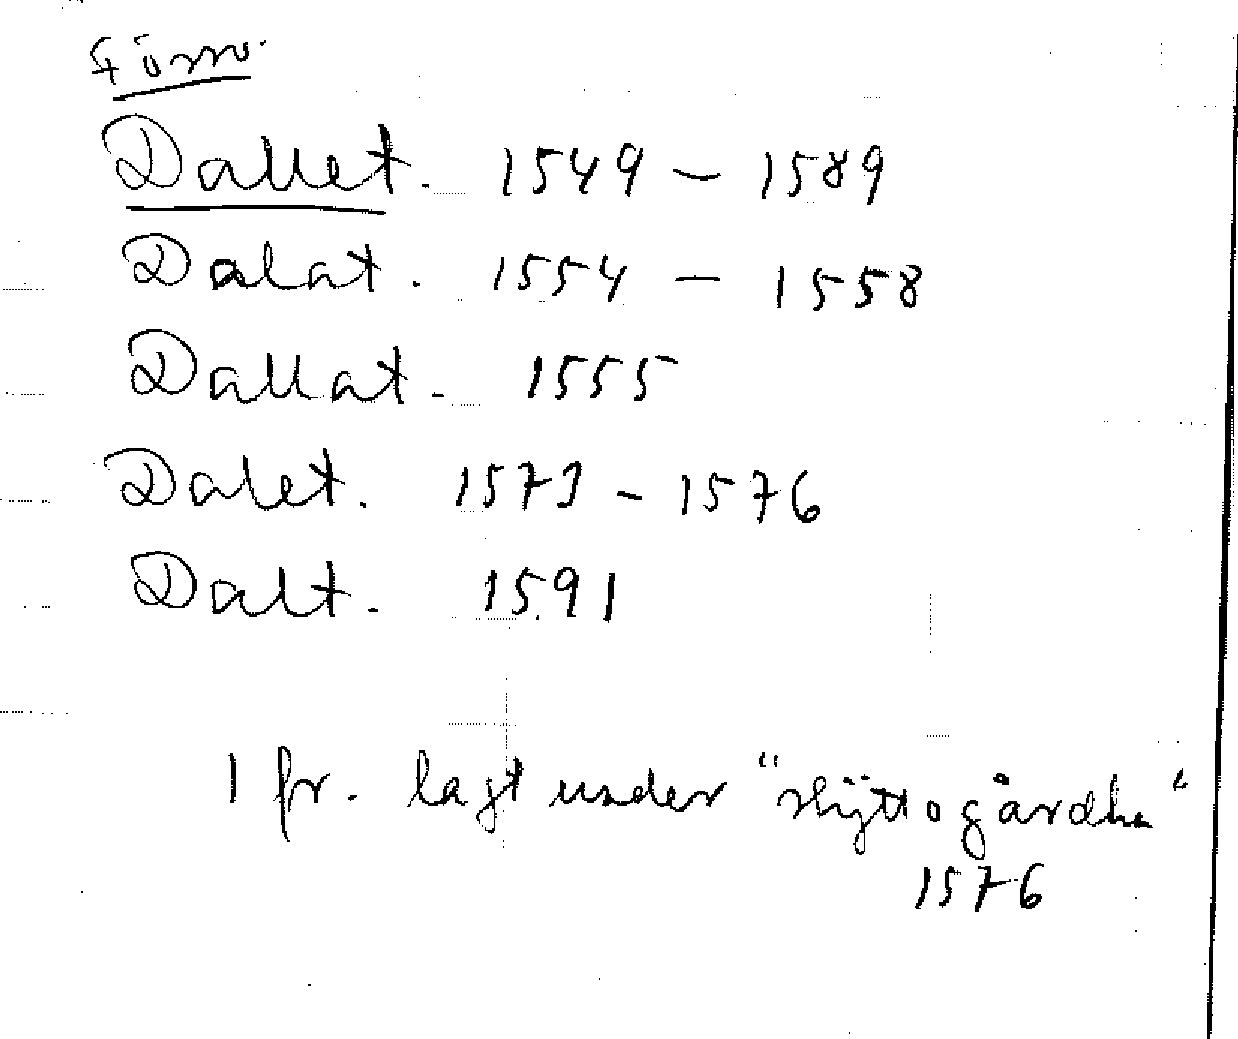 Förm.
Dallet. 1549 – 1589
Dalat. 1554 – 1558
Dallat. 1555
Dalet. 1571 – 1576
Dalt. 1591
1 fr. lagt under "slÿttogårdha"
1576